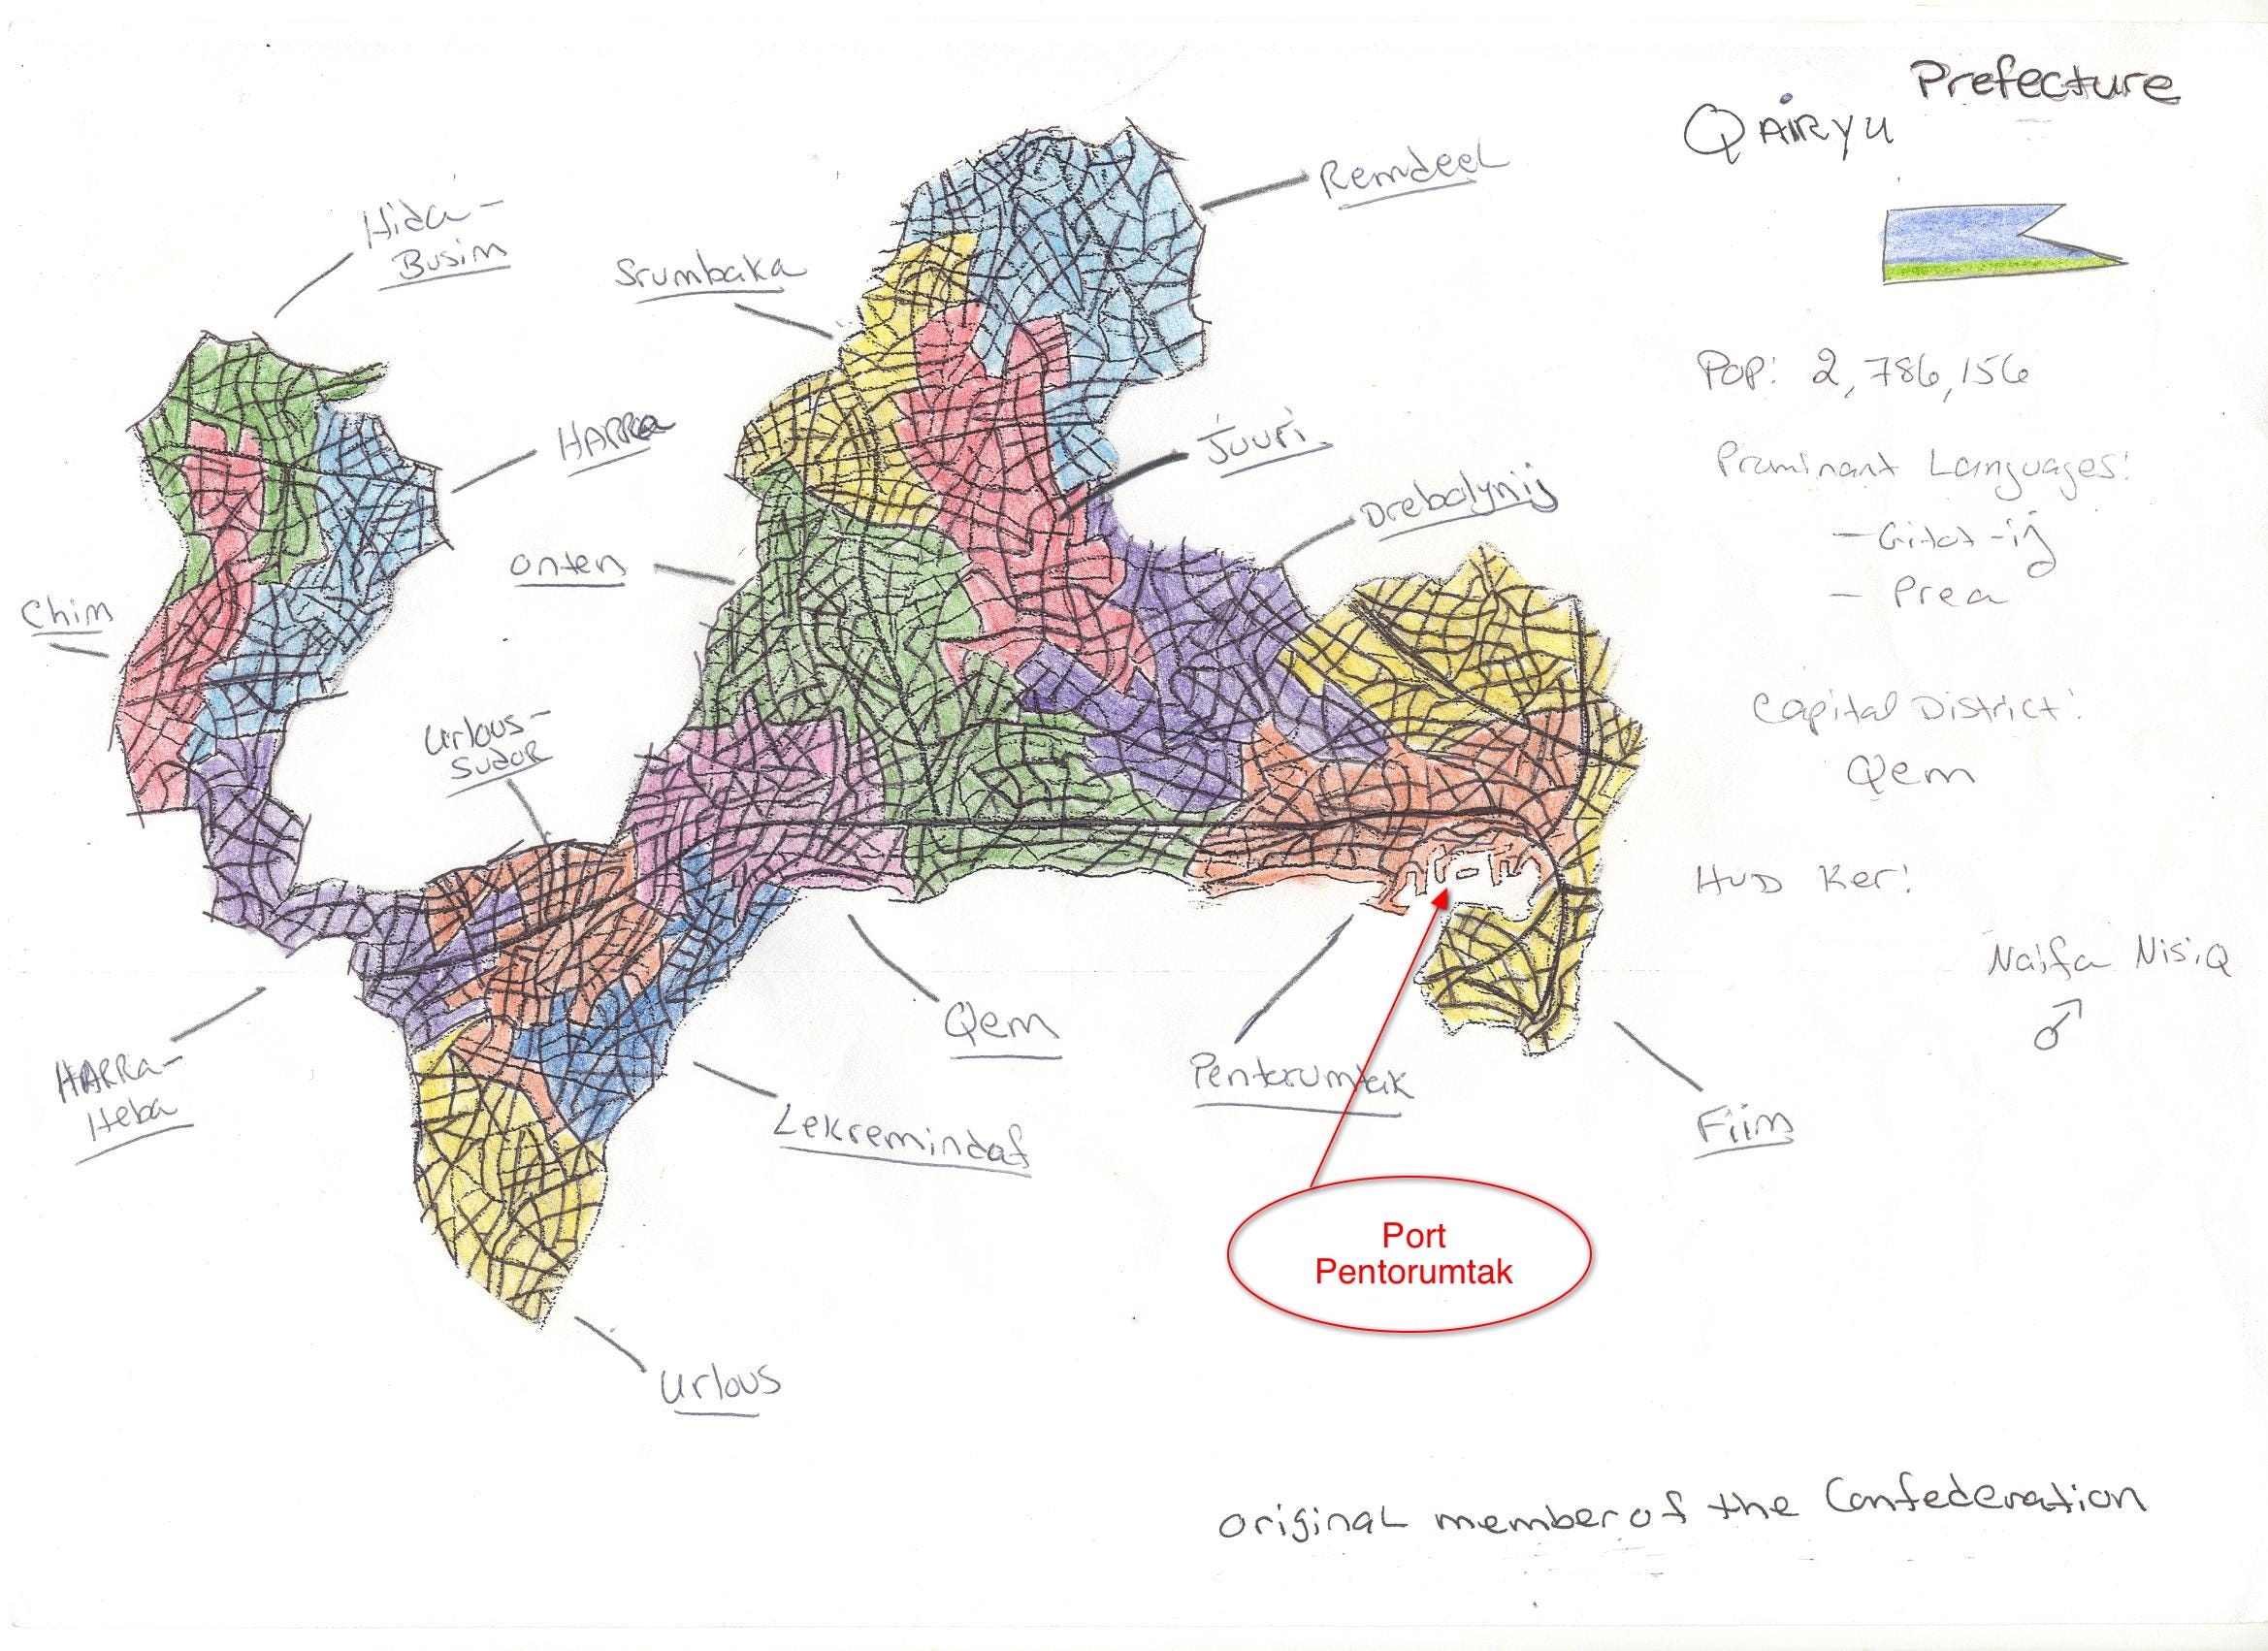 Prefecture
QAiRyu
Pop: 2,786,156
Prominant Languages:
- Gitat-ij
- Prea
Capital District:
Qem
HUD Ker:
Naifa NisiQ
♂
Remdeel
Hida-
Busim
Srumbaka
HARRa
Juuri
Drebalynij
Onten
Chim
Urlous-
Sudor
Qem
HARRa-
Heba
Pentorumtak
Lekremindaf
Fiim
Port
Pentorumtak
Urlous
original member of the Confederation